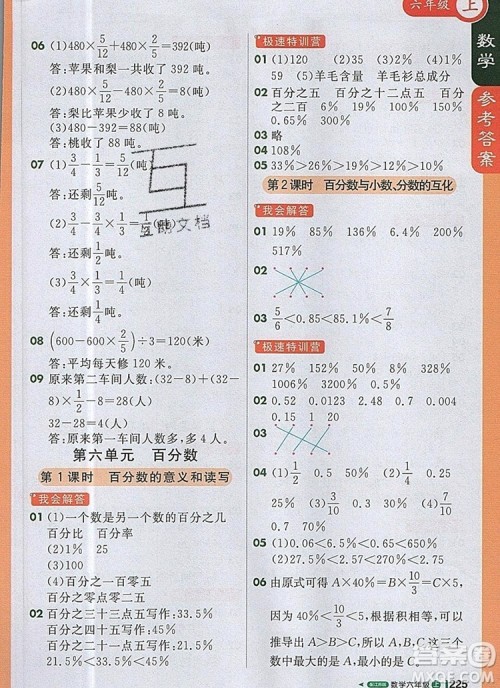 六年级 上
数学
参考答案
06 (1)480×5/12+480×2/5=392(吨)
答:苹果和梨一共收了 392 吨。
(2)480×2/5-480×5/12=8(吨)
答:梨比苹果少收了 8 吨。
(3)480-392=88(吨)
答:桃收了 88 吨。
07 (1)3/4-1/3=5/12(吨)
答:还剩5/12吨。
答:还剩1/2吨。
(3)3/4×1/3=1/4(吨)
答:还剩1/4吨。
08 (600-600×2/5)÷3=120(米)
答:平均每天修 120 米。
09 原来第二车间人数:(32-8)+(32-
8)×1/6=28(人)
32-28=4(人)
答:原来第一车间人数多,多 4 人。
第六单元 百分数
第1课时 百分数的意义和读写
我会解答
01 (1)一个数是另一个数的百分之几
百分比 百分率
(2)1% 25%
(3)100
(4)百分之一百五十
百分之零点零二
02 百分之三十三点五写作:33.5%
百分之四十五写作:45%
百分之二十一点五写作:21.5%
21.5%<33.5%<45%
极速特训营
01 (1)120 (2)35 (3)2 (4)1%
59 (5)羊毛含量 羊毛衫总成分
02 百分之五 百分之十二点五 百分
之二百 6% 140% 0.8%
03 略
04 108%
05 33%>26%>19%>12%>10%
第2课时 百分数与小数、分数的互化
我会解答
01 19% 85% 136% 6.4% 200%
517%
02
03 5/6<0.85<81.5%<7/8
极速特训营
01 27% 152% 50% 32% 328%
1006% 3220% 0.4%
02 0.52 0.03 0.47 0.008 0.026
0.15 1.28 2
03
04 (1)1/2 (2)1/25 (3)3/4 (4)1/10
05 (1)0.06<6.5%<0.6<0.65
(2)2.75%<0.27<2/7<2.7
06 由原式可得 A×40%=B×10/3=C×5,
因为 40%<10/3<5,根据积相等,可以
知道,一个因数越大,另一个因数就
越小,所以 A>B>C,因此这三个数
中最大的是 A,最小的是 C。
互助文档
数学六年级 上
1225
答案圈